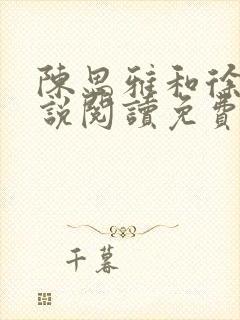 陳思雅和徐
說閱讀免費
千暮